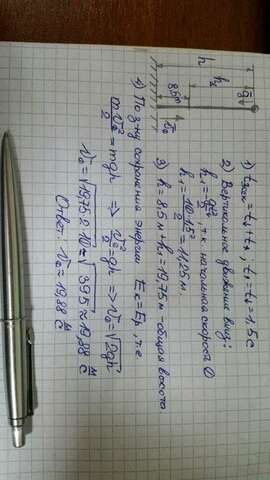 1) tзон = t₁ + t₂, t₁ = t₂ = 1,5 c
2) Вертикальное движение вниз:
h₁ = gt²/2, т.к. начальная скорость 0
h₁ = 10·1,5²/2 = 11,25 м.
3) h = 8,5 м + h₁ = 19,75 м - общая высота
4) По з-ну сохранения энергии Eк = Eр, т.е
mv₀²/2 = mgh ⇒ v₀²/2 = gh ⇒ v₀ = √2gh
v₀ = √19,75·2·10 = √395 ≈ 19,88 м/с
Ответ: v₀ = 19,88 м/с
h
h₁
8,5 м
g
v₀